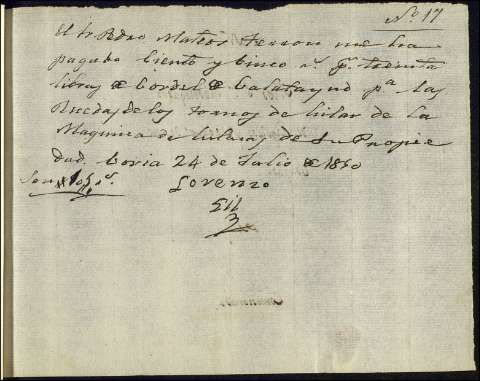 Nº 17
El Sr. Pedro Mateos Ferron me ha
pagado Ciento y Cinco rs. pr. treinta
libras de Cordel de Calatayud pa. las
Ruedas de los tornos de hilar de la
Maquina de hilar de su Propie
dad. Coria 24 de Julio de 1850
Son 105 rs.
Lorenzo
Gil